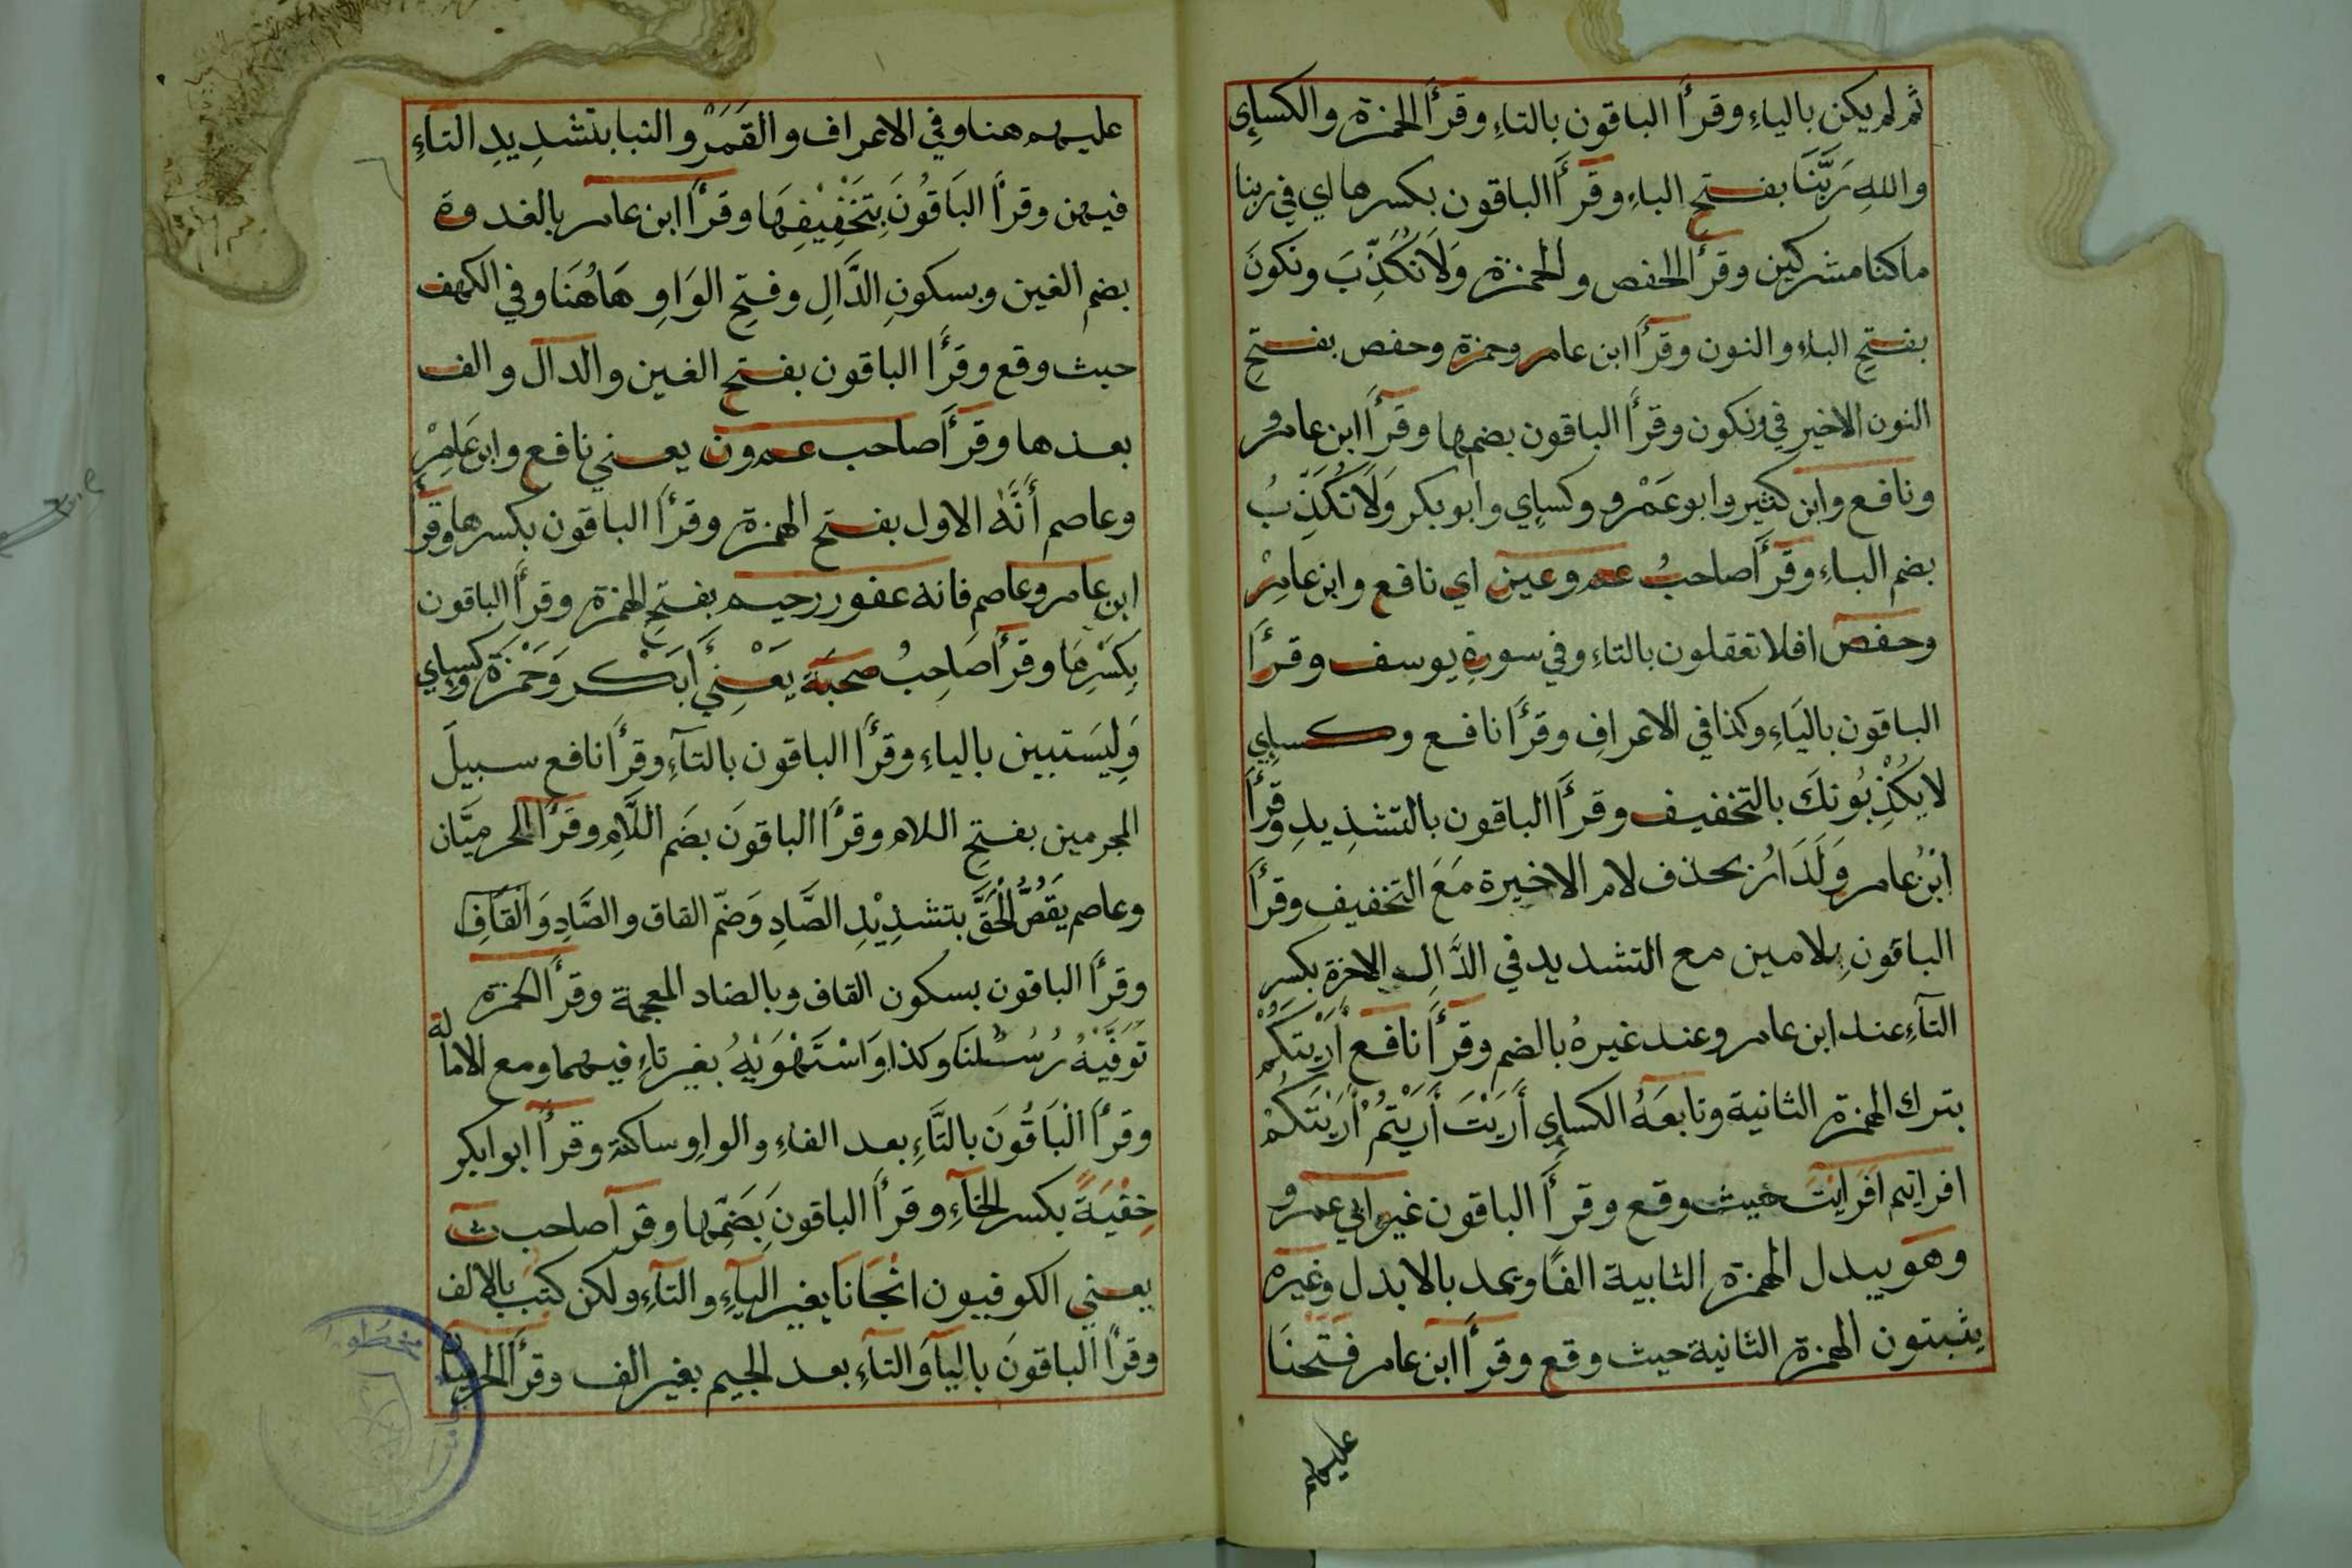 ثم لم يكن بالياءِ وقرأ الباقون بالتاءِ وقرأ الحمزة والكسايِٕ
واللهِ رَبَّنَا بفتحِ الباءِ وقرأ الباقون بكسرها اي في ربنا
ماكنا مشركين وقرأ الحفص والحمزة وَلَا نُكَذِّبَ ونكونَ
بفتحِ الباءِ والنون وقرأ ابن عامر وحمزة وحفص بفتحِ
النون الاخير في ونكون وقرأ الباقون بضمها وقرأ ابن عامر و
ونافع وابن كثير وابو عَمْرو وكسايِٕ وابو بكر وَلَا نُكَذِّبُ
بضم الباءِ وقرأ صاحبُ عم وعين اي نافع وابن عامِرْ
وحفص افلا تعقلون بالتاءِ وفي سورةِ يوسف وقرأ
الباقون باليَاءِ وكذا في الاعرافِ وقرأ نافع وكسايِٕ
لا يُكْذِبُونكَ بالتخفيف وقرأ الباقون بالتشذِيدِ وقرأ
ابنُ عامر وَلَدَارُ بحذف لام الاخيرة مَعَ التخفيفِ وقرأ
الباقونِ بلامين مع التشديد في الدَّالِ الاخرة بكسر
التآءِ عند ابن عامر وعند غيرهُ بالضم وقرأ نافع أَرَيْتَكُمْ
بترك الهمزة الثانية وتابعَهُ الكسايِٕ أَرَيْتَ أَرَيْتُمْ أَرَيْتَكُمْ
افرايتم افَرَايْتَ حيث وقع وقرأ الباقون غير ابي عمرو
وهو يبدل الهمزة الثابية الفًا ويمد بالابدل وغيره
يثبتون الهمزة الثانية حيث وقع وقرأ ابن عامر فَتَّحْنَا
عليهم
عليهم هنا وفي الاعراف والقَمَرْ والنبا بتشدِيدِ التآءِ
فيهن وقرأ البَاقُونَ بِتَخْفِيْفِهَا وقرأ ابن عامر بالغدوة
بضم الغين وبسكونِ الدَّالِ وفتحِ الوَاوِ هَاهُنَا وفي الكهف
حيث وقع وقرأ الباقون بفتح الغين والدال والف
بعذها وقرأ صاحب عمرون يعني نافع وابن عَامِرْ
وعاصم أَنَّهُ الاول بفتح الهمزة وقرأ الباقون بكسرها وقرأ
ابن عامر وعاصم فانه غفور رحيم بفتحِ الهمزة وقرأ الباقون
بِكَسْرِهَا وقرأ صَاحِبُ صحبَة يَعْنِي أَبَكْر وَحَمْزَة وكسِايِ
وَلِيَستبين بالياءِ وقرأ الباقون بالتآءِ وقرأ نافع سبيلَ
المجرمين بفتحِ اللام وقرأ الباقونَ بضَم اللَّامِ وقرأ الحرميَّان
وعاصم يَقُصُّ الْحَقَّ بتشذِيْدِ الصَّادِ وَضمّ القاق والصَّادِ وَالقَافِ
وقرأ الباقون بسكون القاف وبالضاد المعجمة وقرأ الحمزة
تَوَفَّيْهُ رُسُلنَا وكذا وَاسْتَهْوَيْهُ بغير تاءِ فيهما ومع الامالة
وقرأ الْبَاقُونَ بالتَّاءِ بعد الفاءِ والواوِ ساكنة وقرأ ابو ابكر
خِفْيَةً بكسر الخآءِ وقرأ الباقونَ بِضَمِّها وقرآ صاحب ث
يعني الكوفييون انْجَانَا بغير اليآءِ والتآءِ ولكن كتبَ بالالف
وقرأ الباقونَ باليآ وَالتآءِ بعد الجيم بغير الف وقرأ الحرميان